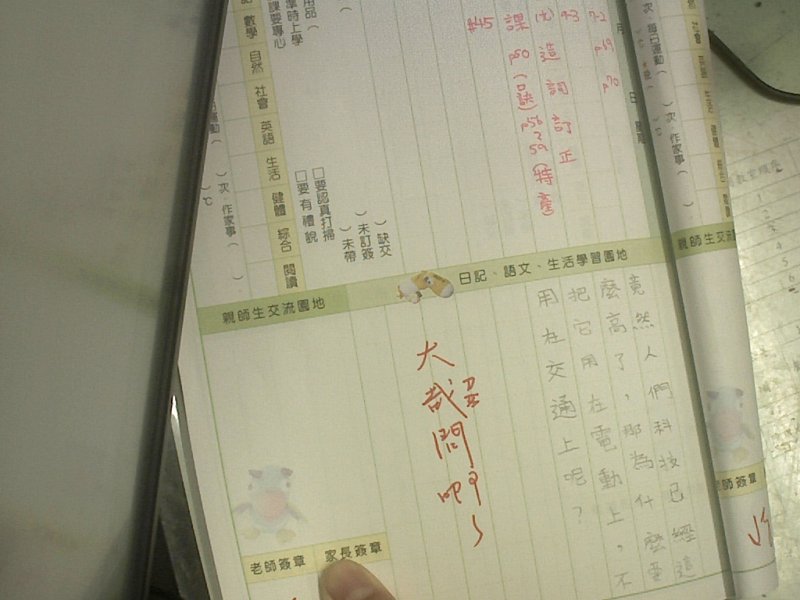 社會 英語 生活 健體 綜合 閱讀
次 每日運動
)次 作家事(
p69 p70
造詞訂正
課 p50 (口訣) p56~59 (特產)
#45
)缺交
)未訂簽
)未帶
□要認真打掃
□要有禮貌
用品(
準時上學
課要專心
數學 自然 社會 英語 生活 健體 綜合 閱讀
)次 作家事( )
)℃
親師生交流
日記、語文、生活學習園地
親師生交流園地
竟然人們科技已經這
麼高了,那為什麼要
把它用在電動上,不
用在交通上呢?
大哉問啊~
師簽章
家長簽章
老師簽章